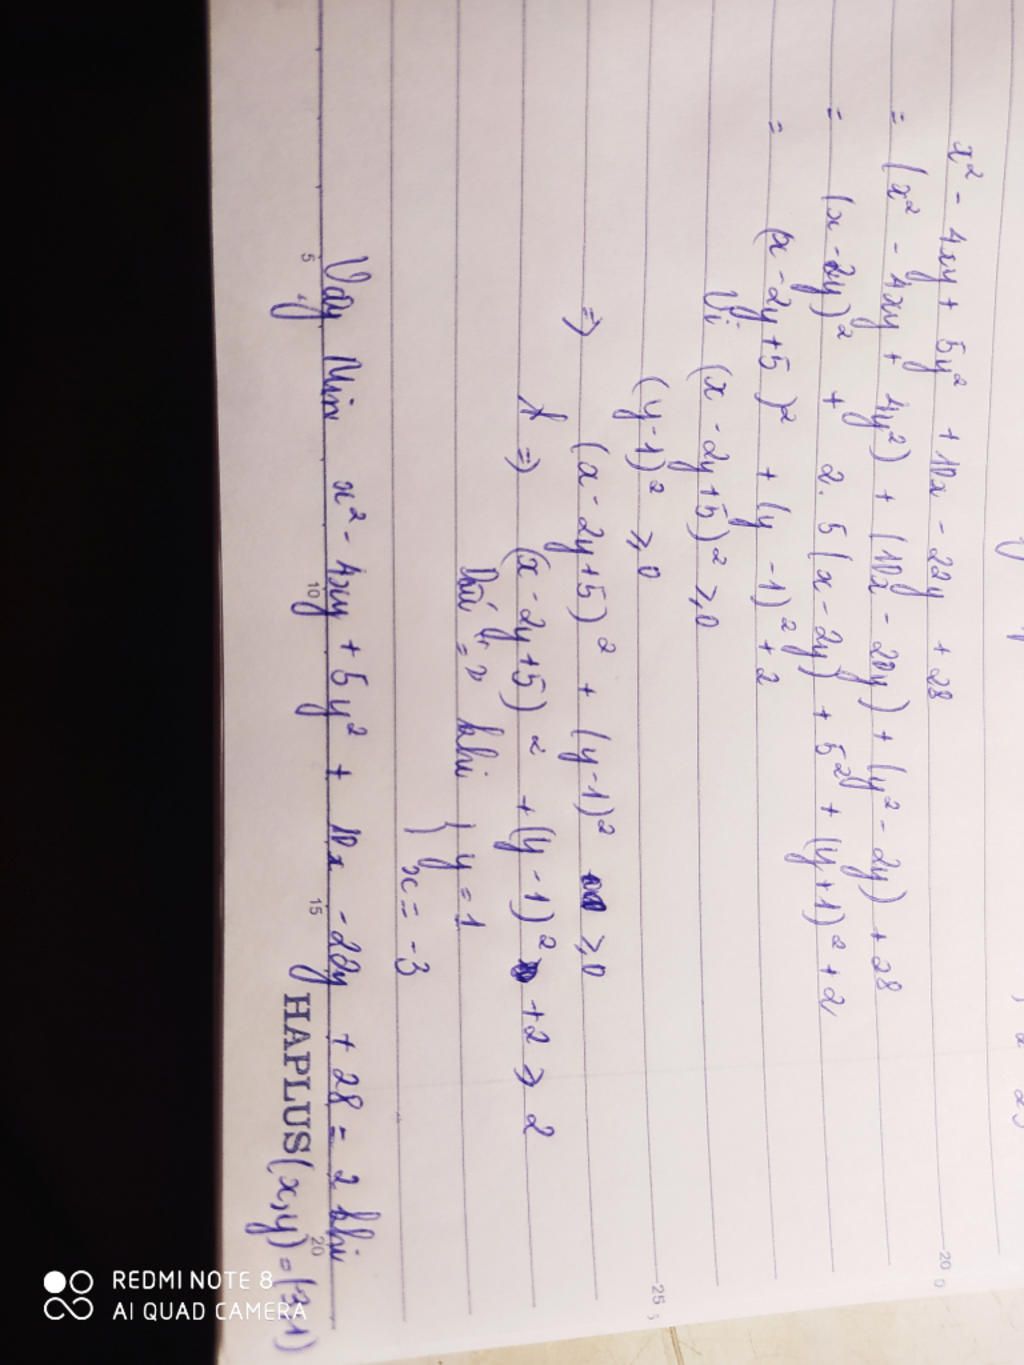 x² - 4xy + 5y² + 10x - 22y + 28
= (x² - 4xy + 4y²) + (10x - 20y) + (y² - 2y) + 28
= (x - 2y)² + 2.5(x - 2y) + 5² + (y+1)² + 2
= (x - 2y + 5)² + (y - 1)² + 2
Vì (x - 2y + 5)² ≥ 0
(y - 1)² ≥ 0
=> (x - 2y + 5)² + (y - 1)² ≥ 0
=> (x - 2y + 5)² + (y - 1)² + 2 ≥ 2
Dấu "=" khi { y = 1
x = -3
Vậy Min x² - 4xy + 5y² + 10x - 22y + 28 = 2 khi
(x,y) = (-3,1)
HAPLUS
5
10
15
20
20
25
REDMI NOTE 8
AI QUAD CAMERA